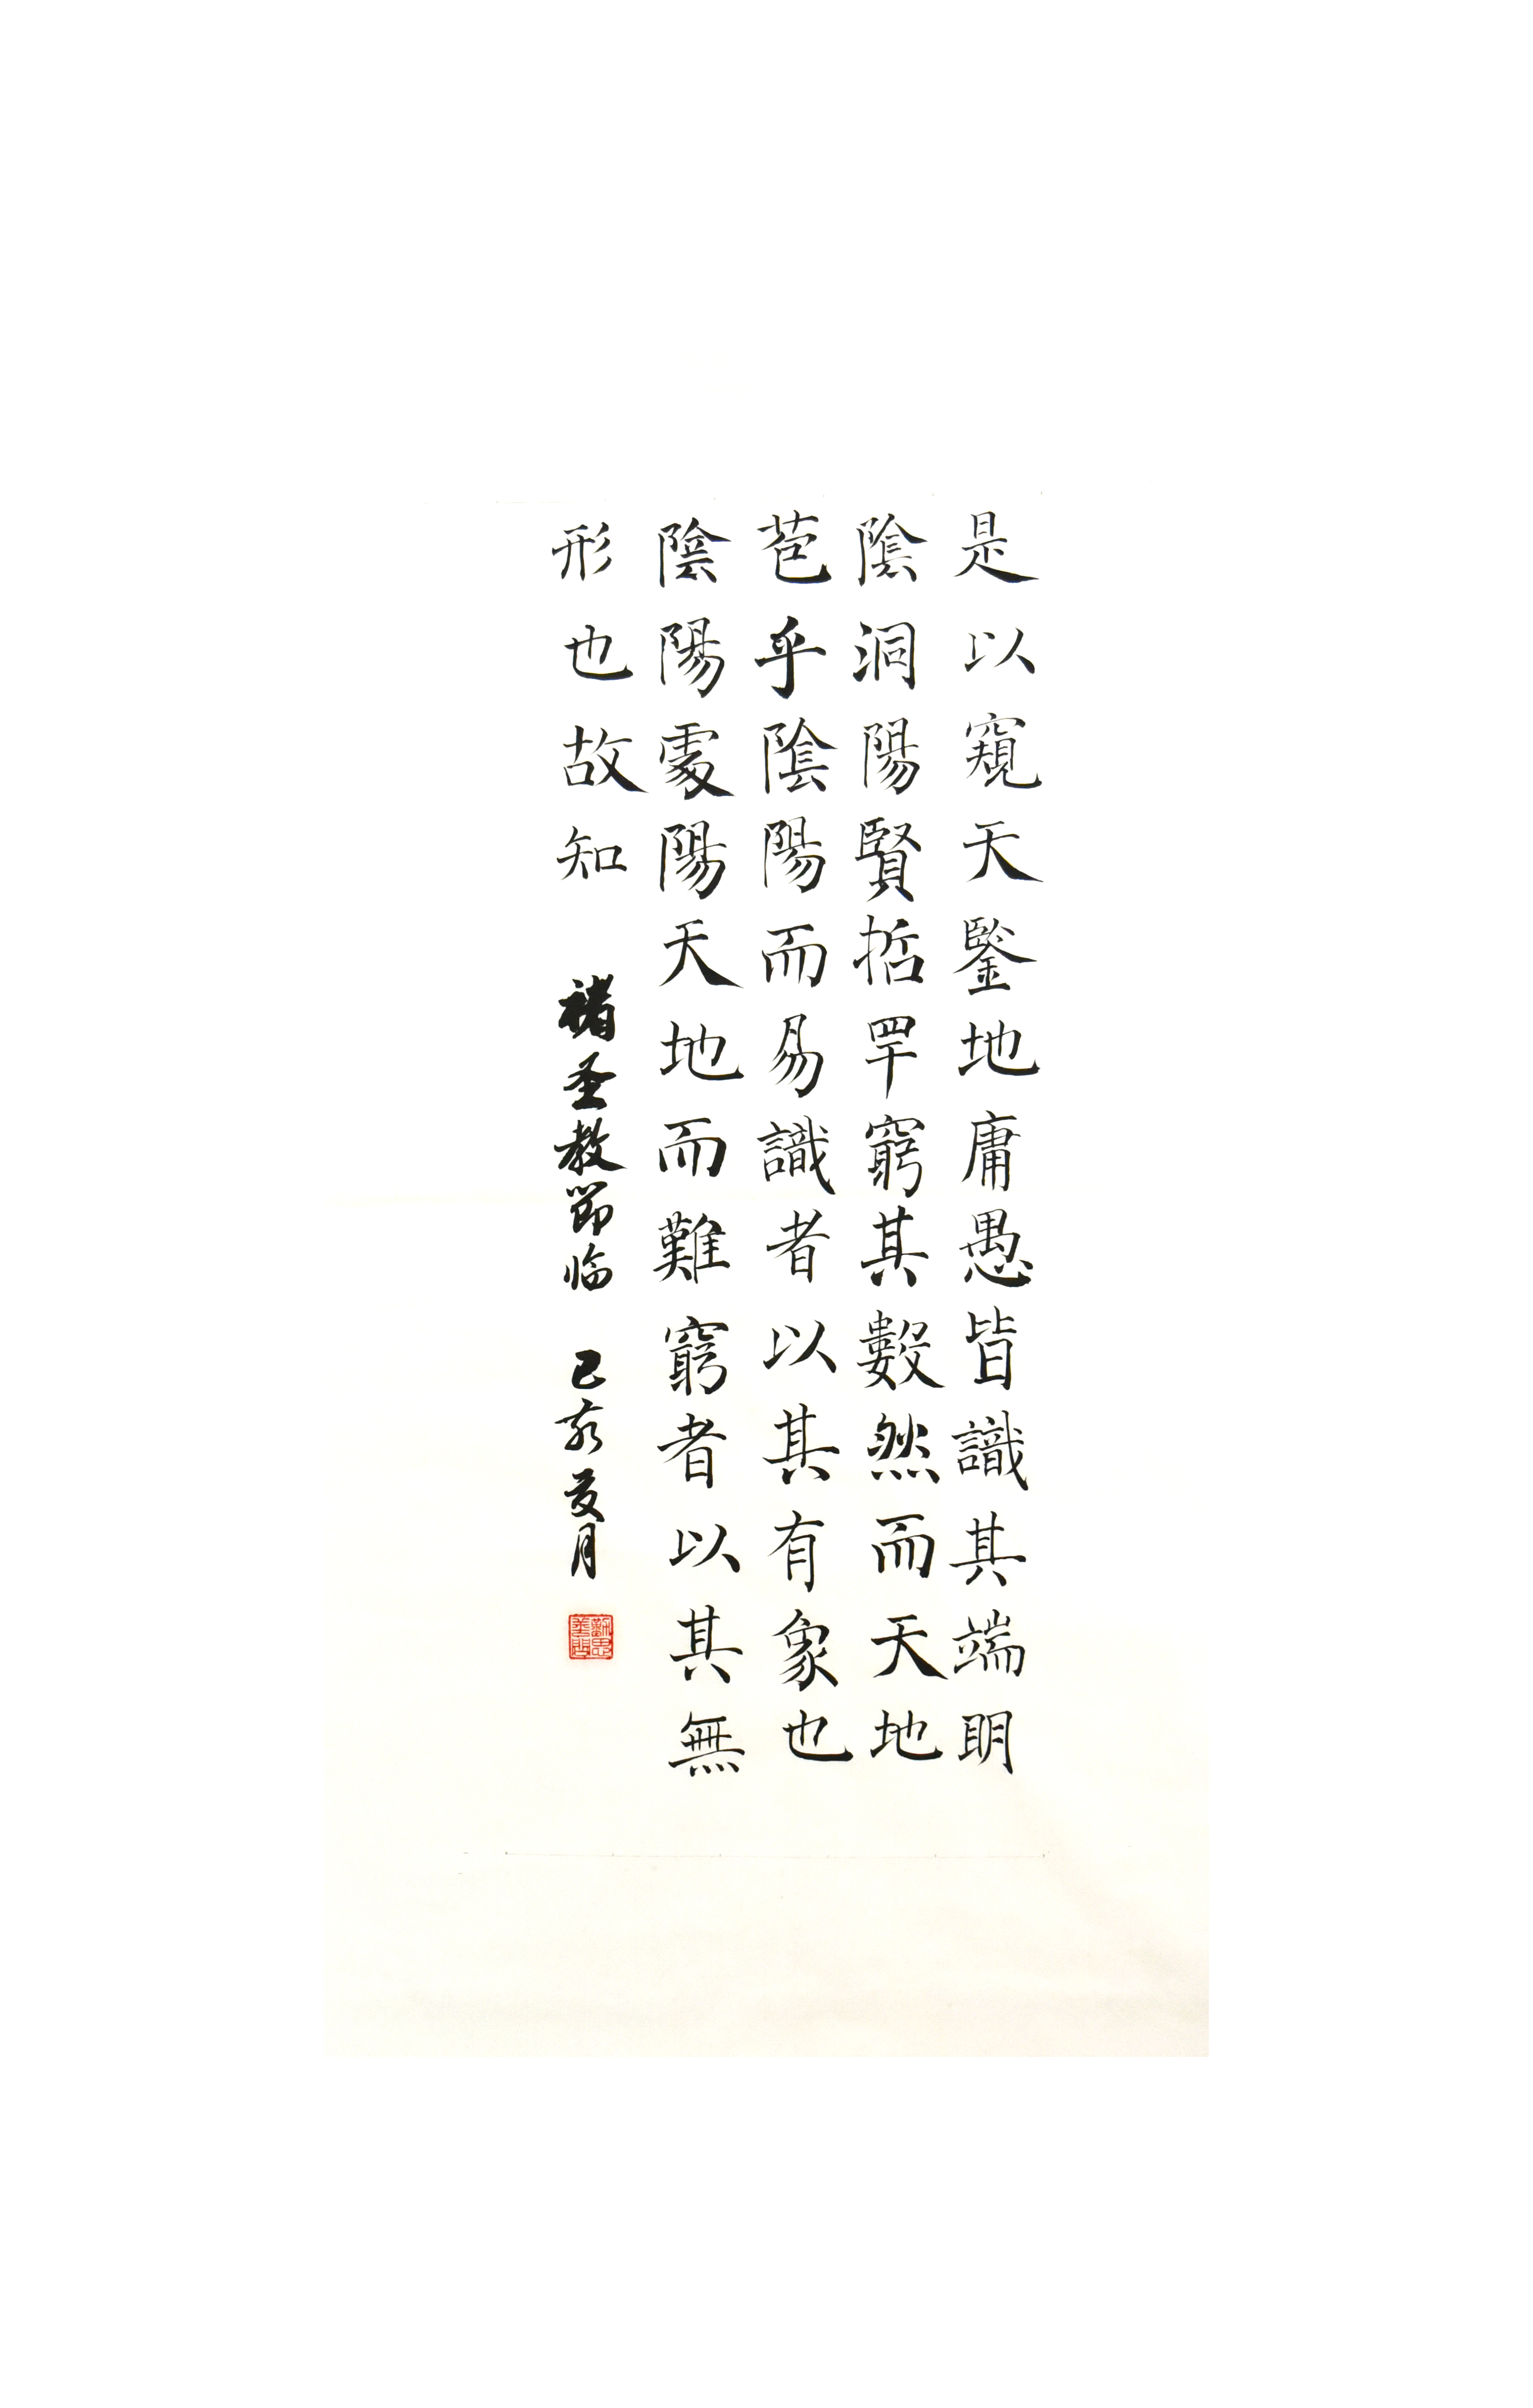 是以窺天鑒地庸愚皆識其端明
陰洞陽賢哲罕窮其數然而天地
苞乎陰陽而易識者以其有象也
陰陽處陽天地而難窮者以其無
形也故知
褚圣教節临 己亥夏月